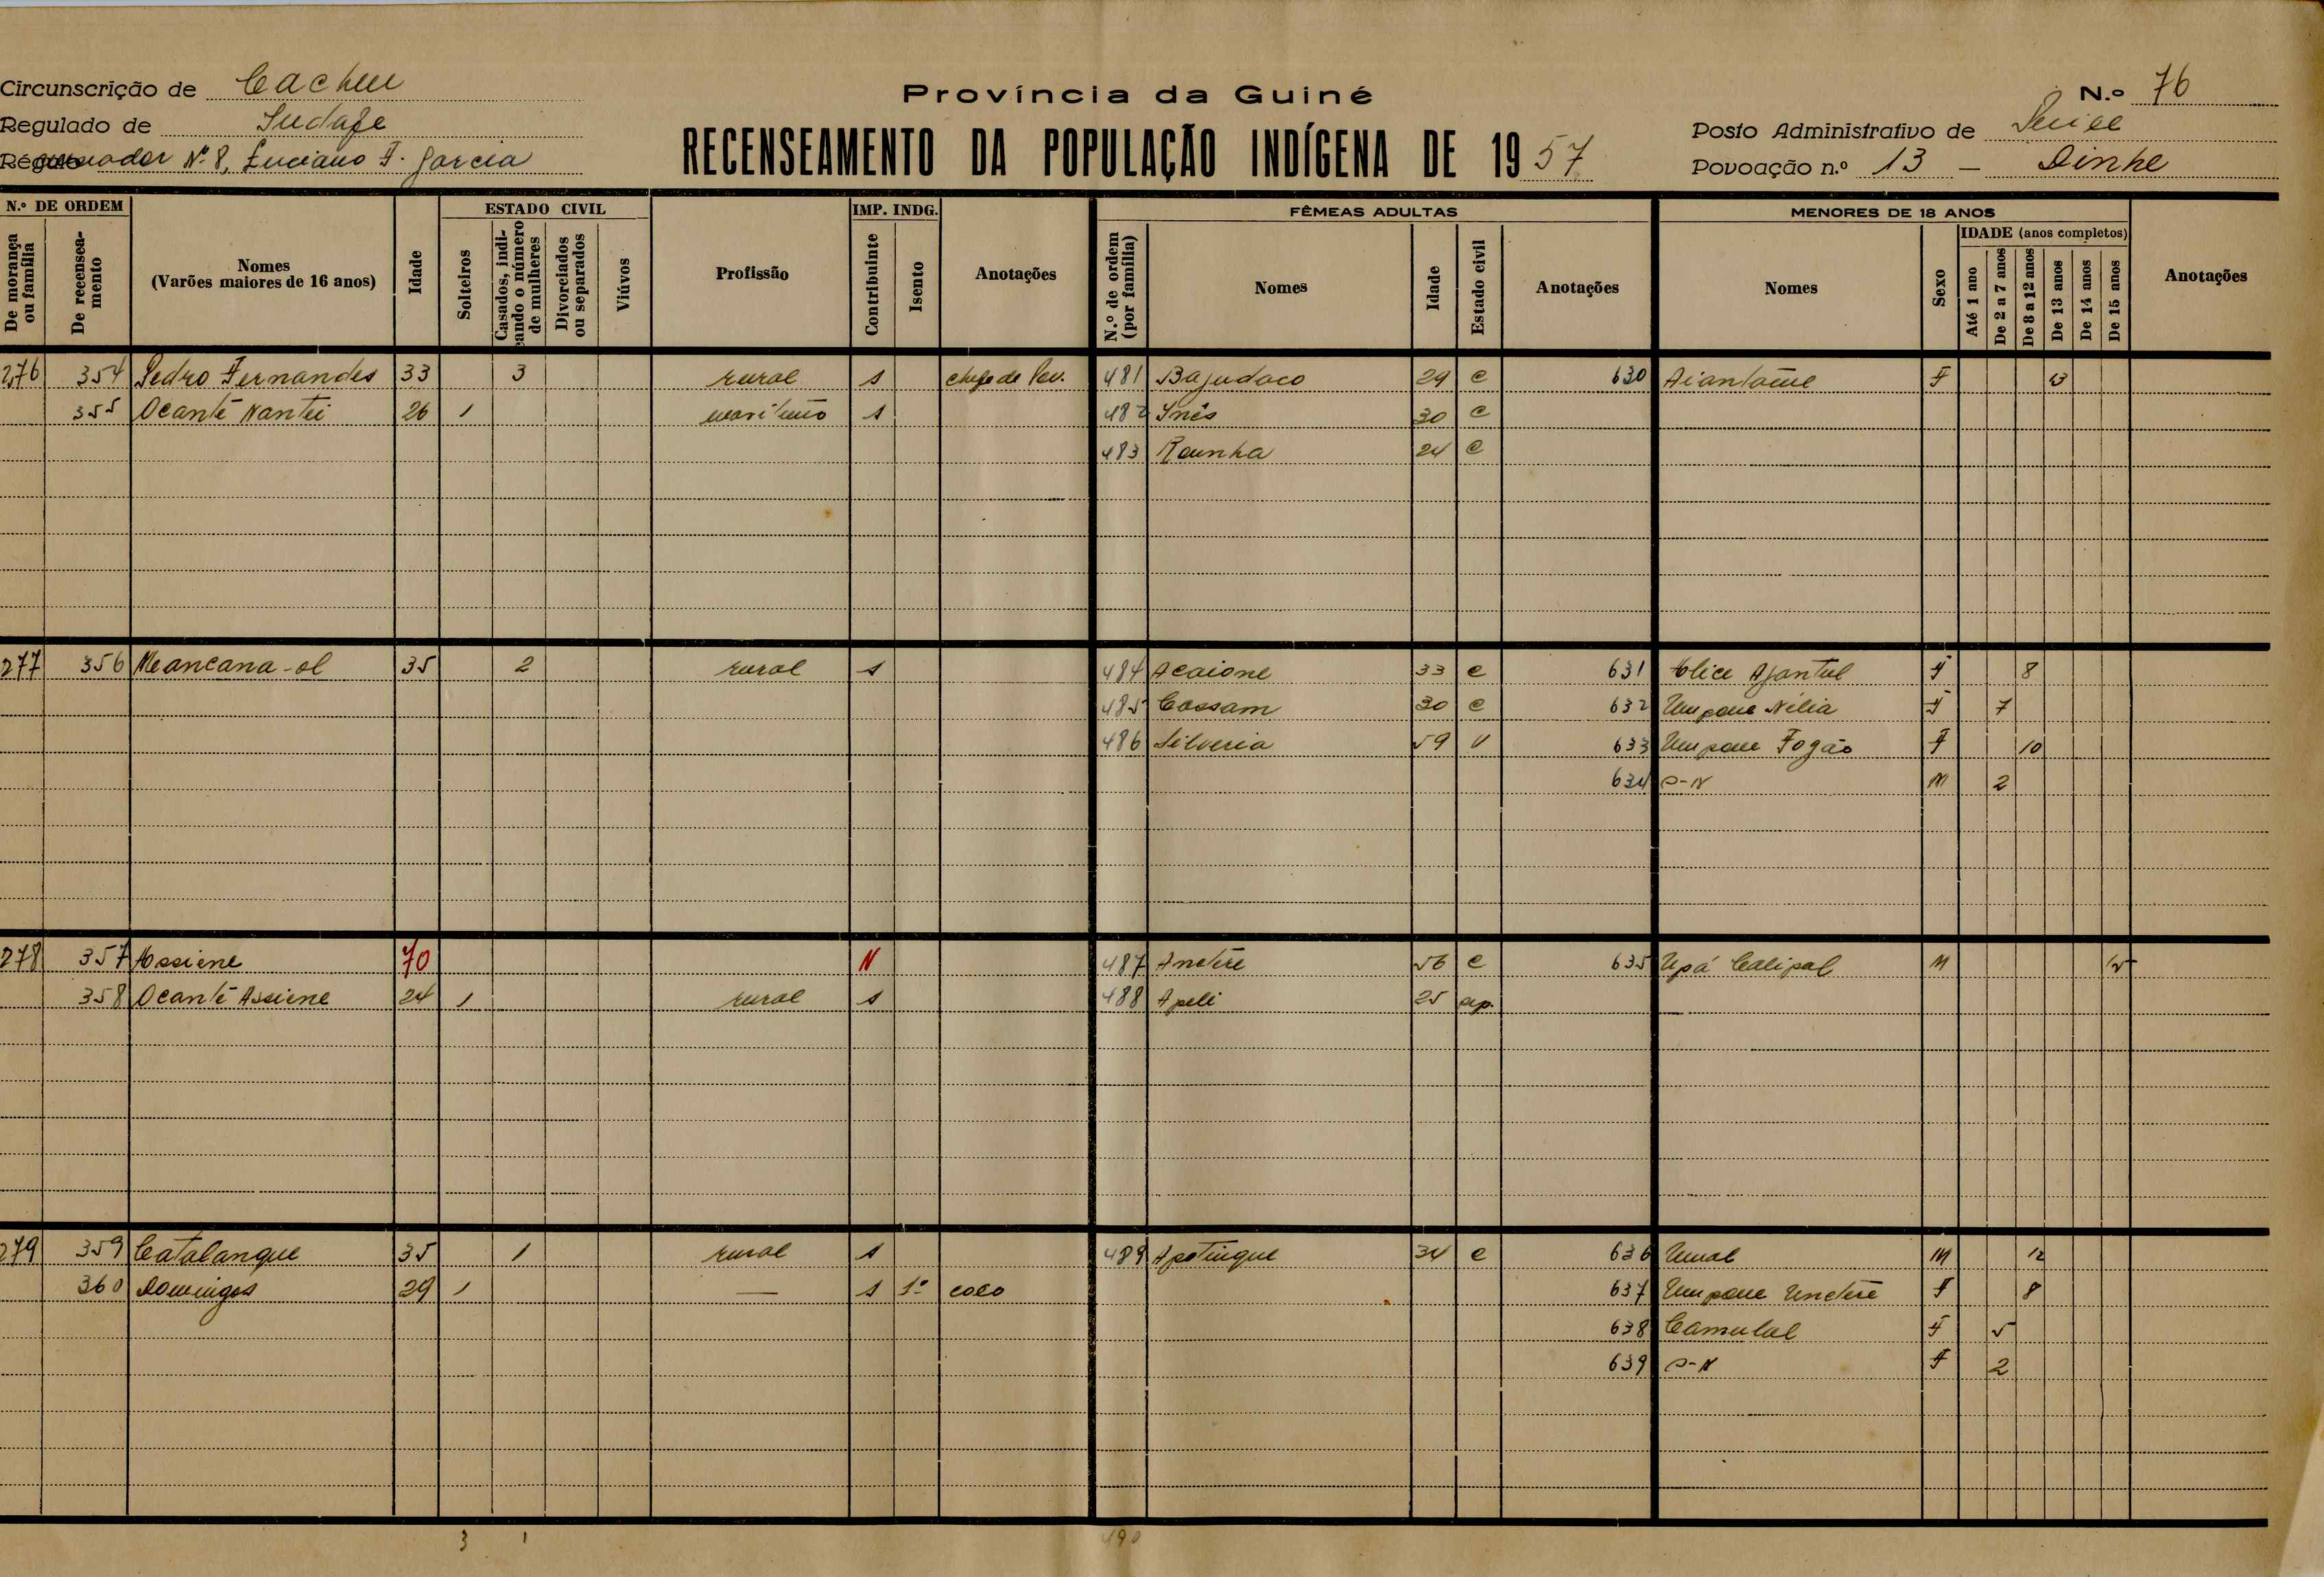 Circunscrição de Cacheu
Província da Guiné
N.º 76
Regulado de
RECENSEAMENTO DA POPULAÇÃO INDÍGENA DE 1957
Posto Administrativo de
Nº 8, Luciano F. Garcia
Povoação n.º 13 — Dinhe
N.º DE ORDEM
De morança ou família
De recenseamento
Nomes
(Varões maiores de 16 anos)
Idade
ESTADO CIVIL
Solteiros
Casados, indicando o número de mulheres
Divorciados ou separados
Viúvos
Profissão
IMP. INDG.
Contribuinte
Isento
Anotações
FÊMEAS ADULTAS
N.º de ordem (por família)
Nomes
Idade
Estado civil
Anotações
MENORES DE 18 ANOS
Nomes
Sexo
IDADE (anos completos)
Até 1 ano
De 2 a 7 anos
De 8 a 12 anos
De 13 anos
De 14 anos
De 15 anos
Anotações
276 354 Pedro Fernandes 33 3 rural s chefe de Pov. 481 Bajudaco 29 c 630 F 13
355 Ocante Nantei 26 1 maritimo s 482 Inês 30 c
483 Rainha 24 c
277 356 Meancana-ol 35 2 rural s 484 Acaione 33 c 631 Alice F 8
485 Cassam 30 c 632 Umpane Nélia F 7
486 Silveria 59 V 633 Umpane Fogão F 10
634 S-N M 2
278 357 Assiene 70 N 487 Andere 56 c 635 Upá Calipal M 15
358 Ocante Assiene 24 1 rural s 488 Apeli 25 sep.
279 359 Catalanque 35 1 rural s 489 Apotinque 34 c 636 Umal M 12
360 Domingos 29 1 — s 1º 637 Umpane F 8
638 Camulal F 5
639 S-N F 2
3 1 490